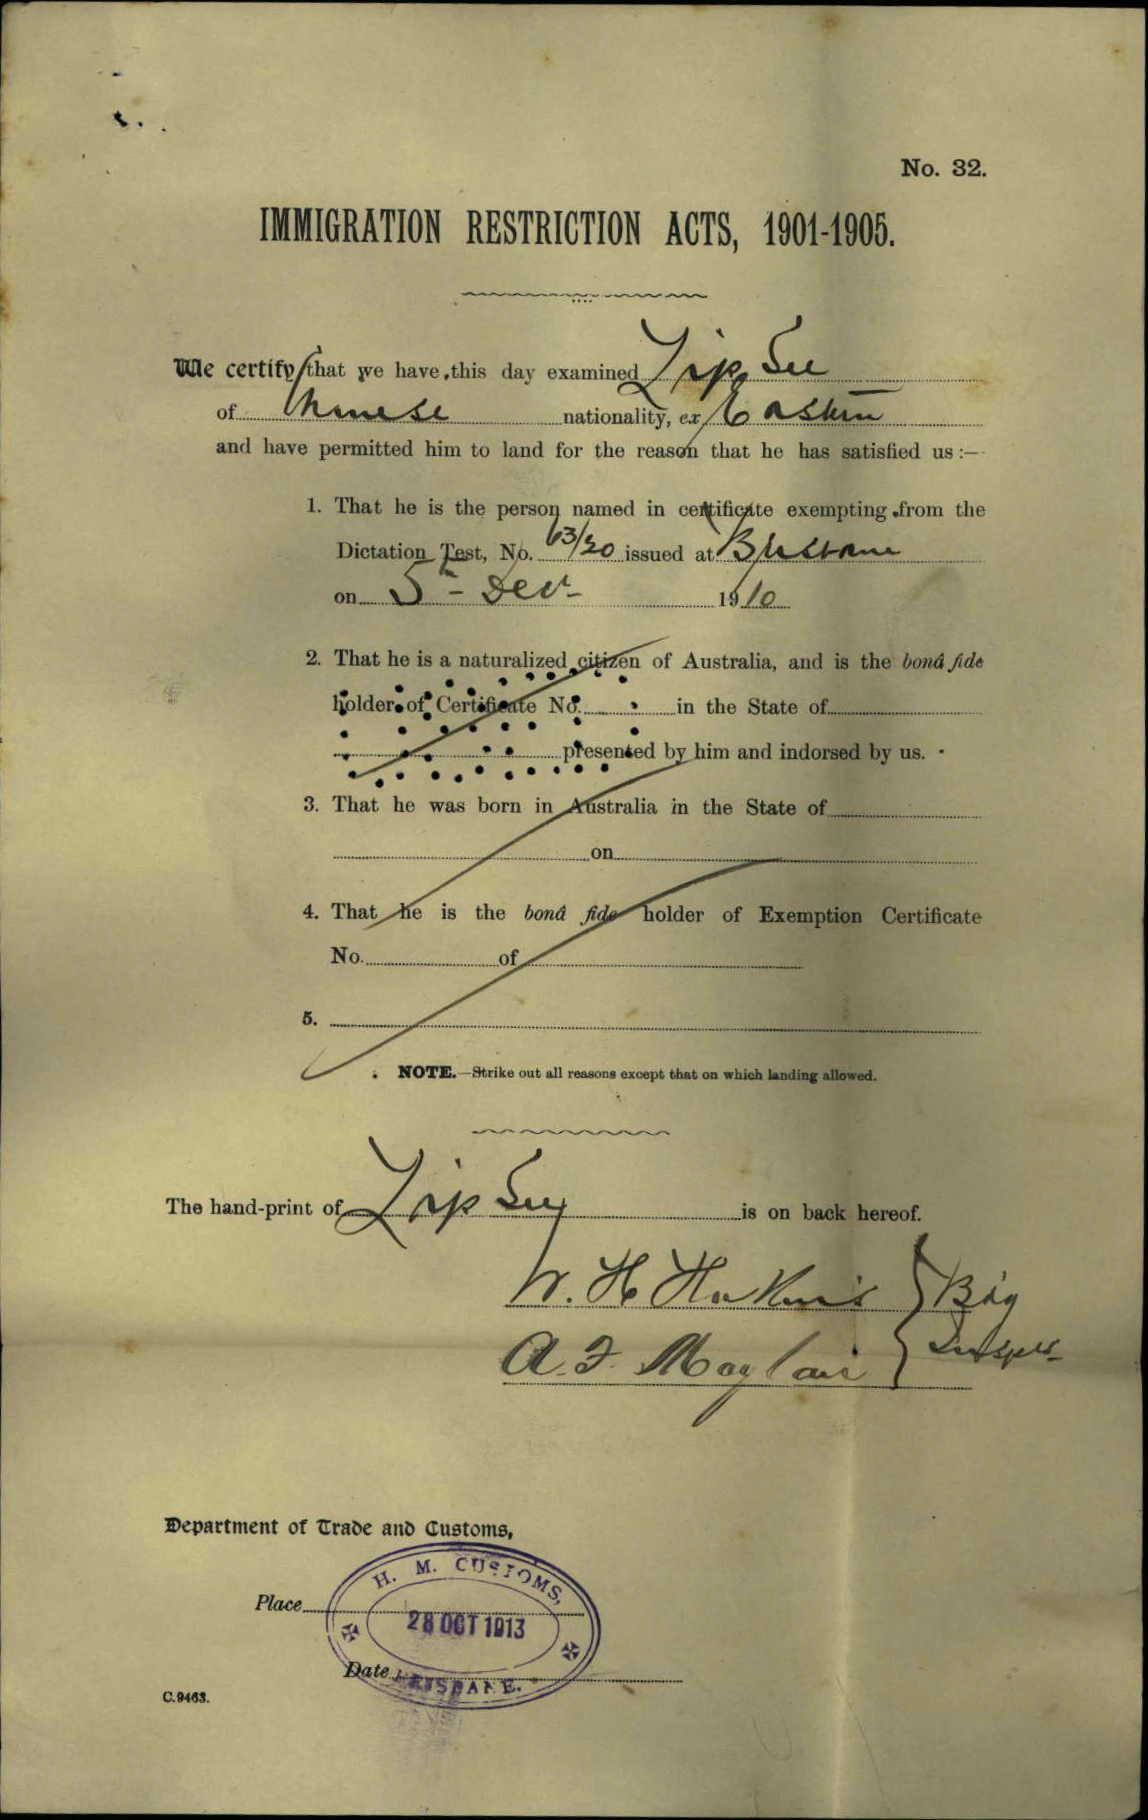 No. 32.
IMMIGRATION RESTRICTION ACTS, 1901-1905.
We certify that we have this day examined Yip See
of Chinese nationality, ex Eastern
and have permitted him to land for the reason that he has satisfied us :—
1. That he is the person named in certificate exempting from the
Dictation Test, No. 63/20 issued at Brisbane
on 5th Decr 1910
2. That he is a naturalized citizen of Australia, and is the bonâ fide
holder of Certificate No. in the State of
presented by him and indorsed by us.
3. That he was born in Australia in the State of
on
4. That he is the bonâ fide holder of Exemption Certificate
No. of
5.
NOTE.—Strike out all reasons except that on which landing allowed.
The hand-print of Yip See is on back hereof.
W. H. Bdg
A. F. Insprs
Department of Trade and Customs,
H. M. CUSTOMS,
Place
28 OCT 1913
Date
BRISBANE.
C.9463.